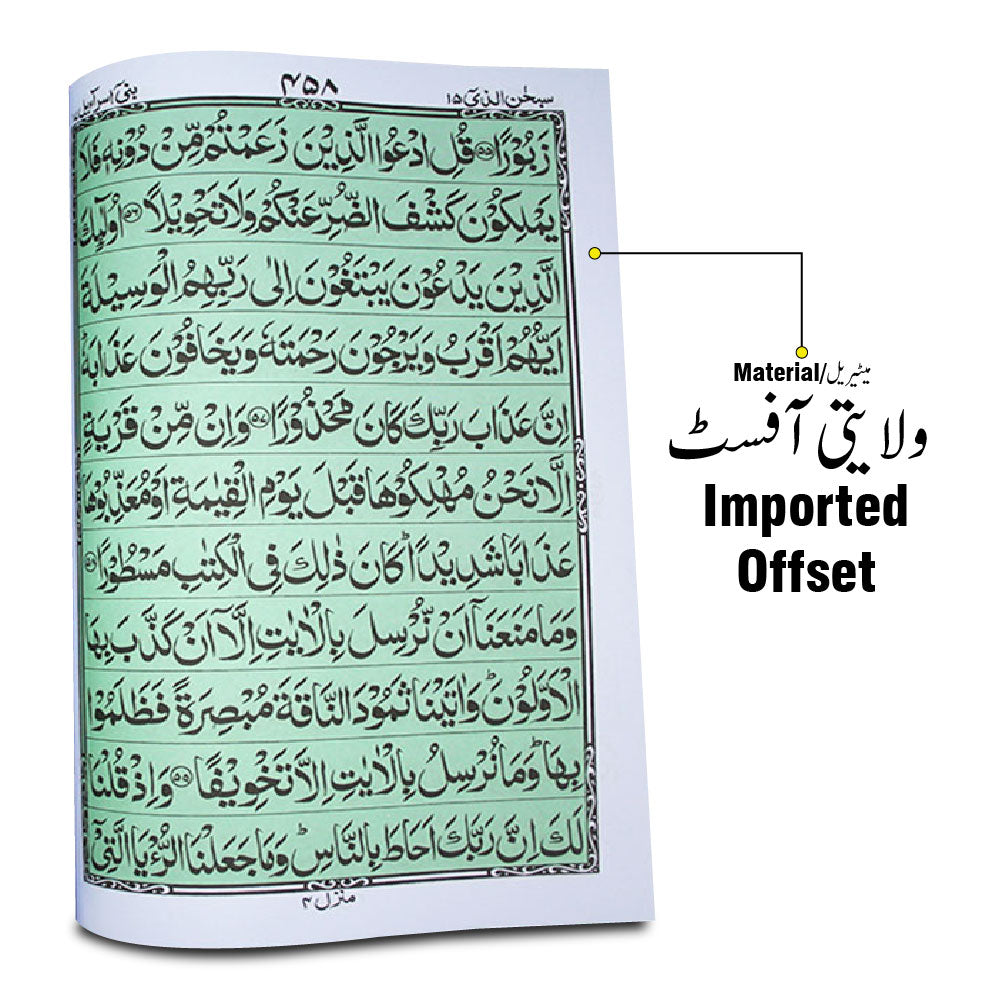 بنیٓ اسرآءیل ۱۷
۴۵۸
سبحٰن الذیٓ ۱۵
زَبُوْرًا ۝۵۵ قُلِ ادْعُوا الَّذِیْنَ زَعَمْتُمْ مِّنْ دُوْنِهٖ فَلَا
یَمْلِكُوْنَ كَشْفَ الضُّرِّ عَنْكُمْ وَلَا تَحْوِیْلًا ۝۵۶ اُولٰٓىِٕكَ
الَّذِیْنَ یَدْعُوْنَ یَبْتَغُوْنَ اِلٰى رَبِّهِمُ الْوَسِیْلَةَ
اَیُّهُمْ اَقْرَبُ وَیَرْجُوْنَ رَحْمَتَهٗ وَیَخَافُوْنَ عَذَابَهٗ
اِنَّ عَذَابَ رَبِّكَ كَانَ مَحْذُوْرًا ۝۵۷ وَاِنْ مِّنْ قَرْیَةٍ
اِلَّا نَحْنُ مُهْلِكُوْهَا قَبْلَ یَوْمِ الْقِیٰمَةِ اَوْ مُعَذِّبُوْهَا
عَذَابًا شَدِیْدًا ؕ كَانَ ذٰلِكَ فِی الْكِتٰبِ مَسْطُوْرًا ۝۵۸
وَمَا مَنَعَنَاۤ اَنْ نُّرْسِلَ بِالْاٰیٰتِ اِلَّاۤ اَنْ كَذَّبَ بِهَا
الْاَوَّلُوْنَ ؕ وَاٰتَیْنَا ثَمُوْدَ النَّاقَةَ مُبْصِرَةً فَظَلَمُوْا
بِهَا ؕ وَمَا نُرْسِلُ بِالْاٰیٰتِ اِلَّا تَخْوِیْفًا ۝۵۹ وَاِذْ قُلْنَا
لَكَ اِنَّ رَبَّكَ اَحَاطَ بِالنَّاسِ ؕ وَمَا جَعَلْنَا الرُّءْیَا الَّتِیْۤ
منزل ۴
Material/میٹیریل
ولایتی آفسٹ
Imported
Offset